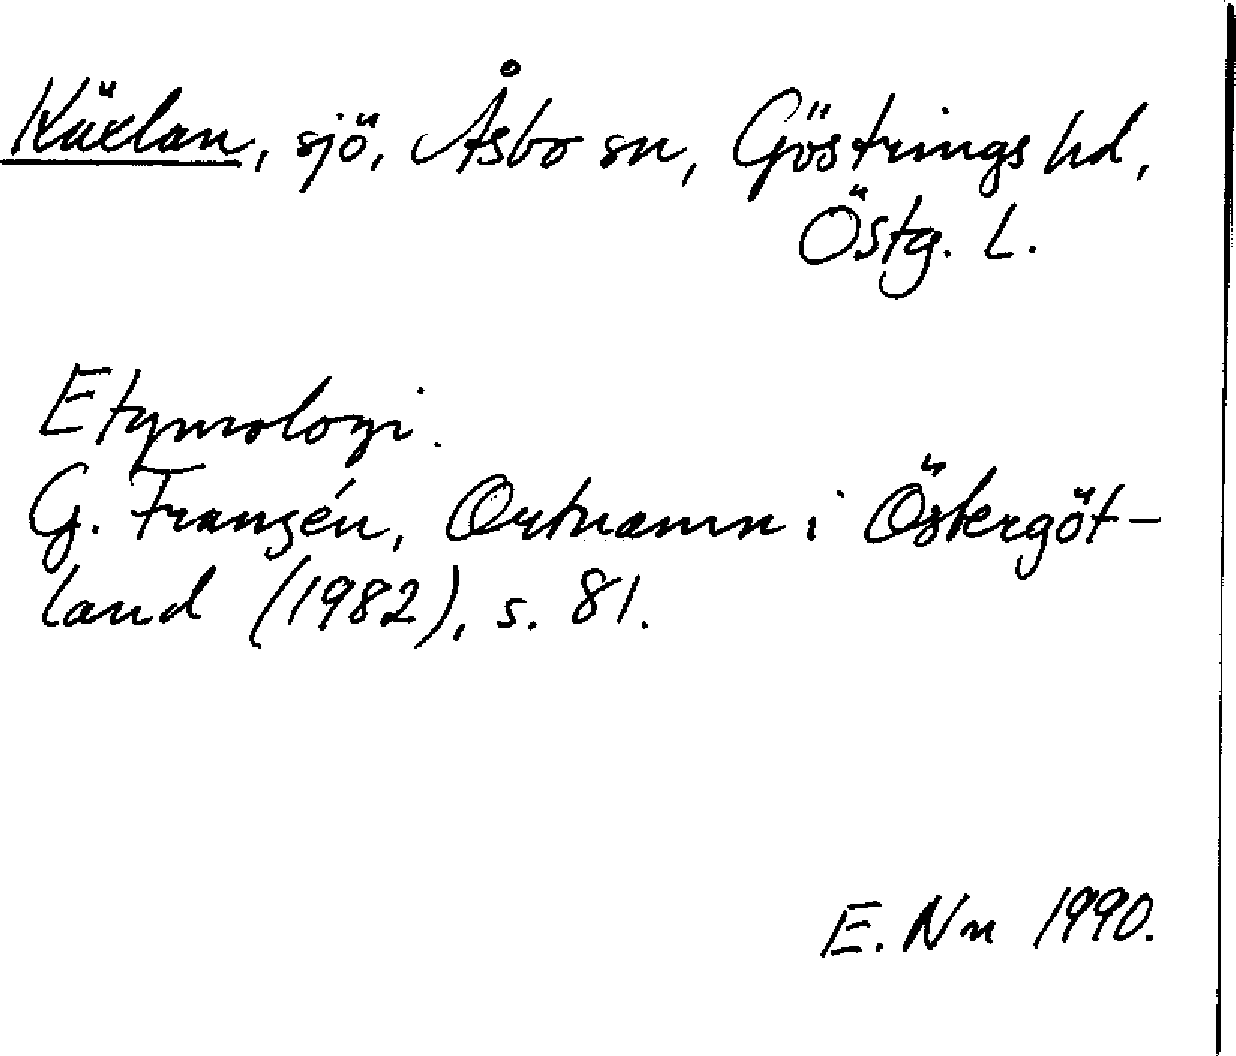 Käxlan, sjö, Åsbo sn, Göstrings hd,
Östg. L.
Etymologi.
G. Franzén, Ortnamn i Östergöt-
land (1982), s. 81.
E. Nn 1990.